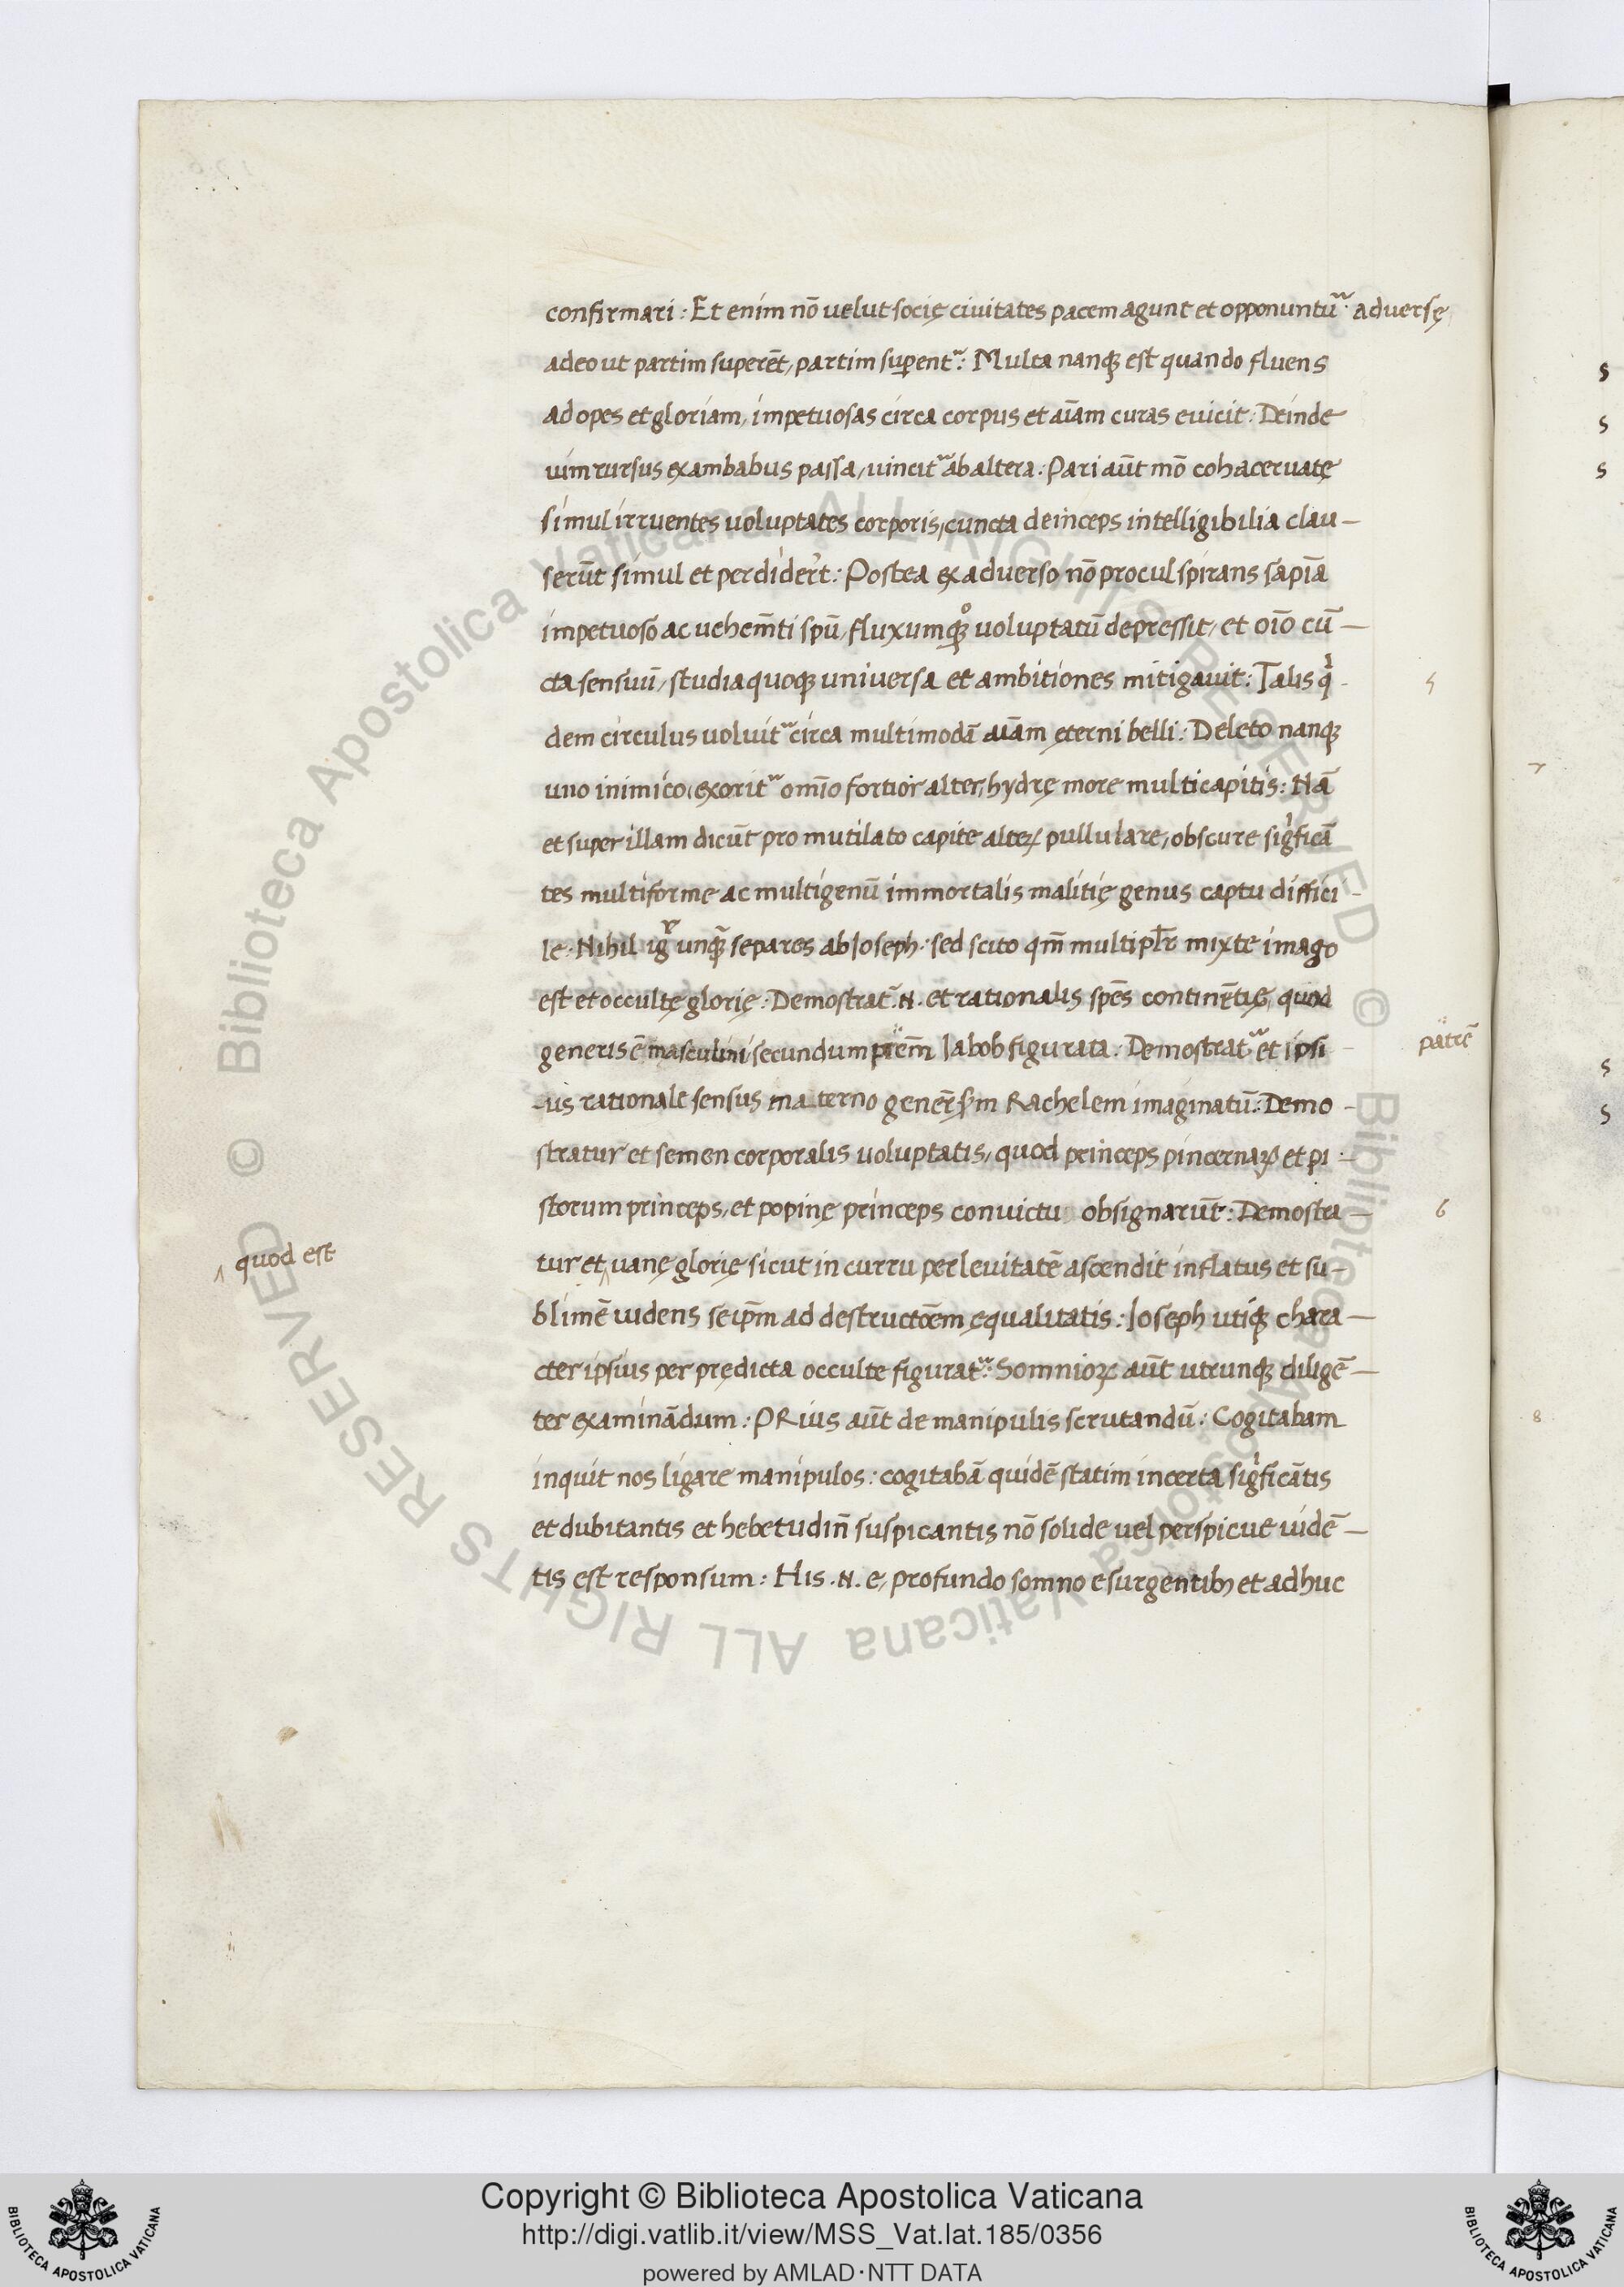 confirmari : Et enim nō uelut socię ciuitates pacem agunt et opponuntur adversę
adeo ut partim superēt, partim superentr : Multa nanq; est quando fluens
ad opes et gloriam, impetuosas circa corpus et aīam curas euicit : Deinde
uim rursus ex ambabus passa, uincitr ab altera : Pari aūt mō cohaceruatę
simul irruentes uoluptates corporis, cuncta deinceps intelligibilia clau-
serūt simul et perdiderūt : Postea ex aduerso nō procul spirans sapīa
impetuoso ac uehemēti spū, fluxumq; uoluptatū depressit, et oīo cū-
cta sensuū, studia quoq; universa et ambitiones mitigauit : Talis qi-
dem circulus uoluitr circa multimodā aīam ęterni belli : Deleto nanq;
uno inimico, exoritr omīo fortior alter, hydrę more multicapitis : Nā
et super illam dicūt pro mutilato capite alterꝝ pullulare, obscure sigificā
tes multiforme ac multigenū immortalis malitię genus captu diffici-
le · Nihil igr unquā separes ab Joseph · sed scito qm̄ multiplr mixte imago
est et occultę glorię : Demostratr .N. et rationalis spēs continētię, quod
generis ē masculini secundum prēm Jabob figurata : Demostratr et ipsi-
patrē
-us rationale sensus materno generi sm Rachelem imaginatū : Demo-
stratur et semen corporalis uoluptatis, quod princeps pincernaꝝ et pi-
storum princeps, et popinę princeps convictu obsignarūt : Demostra-
quod est
tur et uanę glorię sicut in curru per levitatē ascendit inflatus et su-
blimē uidens seipm̄ ad destructōem ęqualitatis : Joseph utiq; chara-
cter ipsius per prędicta occulte figuratr : Somnioꝝ aūt utrunq; diligē-
ter examinādum : PRius aūt de manipulis scrutandū : Cogitabam
inquit nos ligare manipulos : cogitabā quidē statim incerta sigificātis
et dubitantis et hebetudin̄ suspicantis nō solide uel perspicue uidē-
tis est responsum : His .N. e, profundo somno esurgentib; et adhuc
5
6
7
8
S
S
S
S
S
© Biblioteca Apostolica Vaticana ALL RIGHTS RESERVED
© Biblioteca Apostolica Vaticana ALL RIGHTS RESERVED
Copyright © Biblioteca Apostolica Vaticana
http://digi.vatlib.it/view/MSS_Vat.lat.185/0356
powered by AMLAD·NTT DATA
BIBLIOTECA APOSTOLICA VATICANA
BIBLIOTECA APOSTOLICA VATICANA